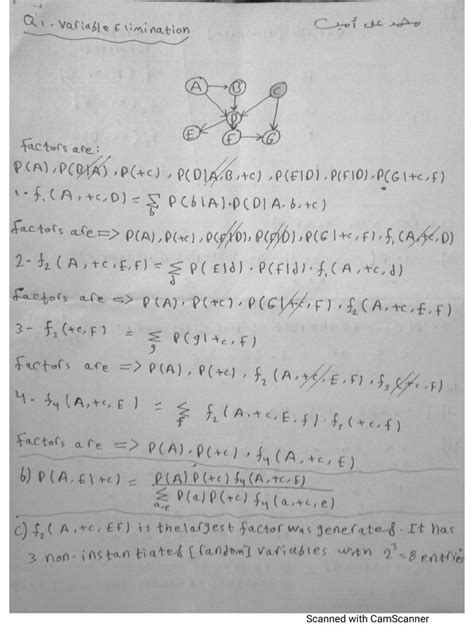 Q1. Variable Elimination
A B C
D
E F G
Factors are:
P(A), P(B|A), P(+c), P(D|A,B,+c), P(E|D), P(F|D), P(G|+c,F)
1- f₁(A,+c,D) = Σ_b P(b|A).P(D|A,b,+c)
Factors are => P(A), P(+c), P(E|D), P(F|D), P(G|+c,F), f₁(A,+c,D)
2- f₂(A,+c,E,F) = Σ_d P(E|d).P(F|d).f₁(A,+c,d)
Factors are => P(A), P(+c), P(G|+c,F), f₂(A,+c,E,F)
3- f₃(+c,F) = Σ_g P(g|+c,F)
Factors are => P(A), P(+c), f₂(A,+c,E,F), f₃(+c,F)
4- f₄(A,+c,E) = Σ_f f₂(A,+c,E,f).f₃(+c,f)
Factors are => P(A), P(+c), f₄(A,+c,E)
b) P(A,E|+c) = P(A)P(+c)f₄(A,+c,E)
Σ_a,e P(a)P(+c)f₄(a,+c,e)
c) f₂(A,+c,EF) is the largest factor was generated. It has
3 non-instantiated [random] variables with 2³=8 entries
Scanned with CamScanner